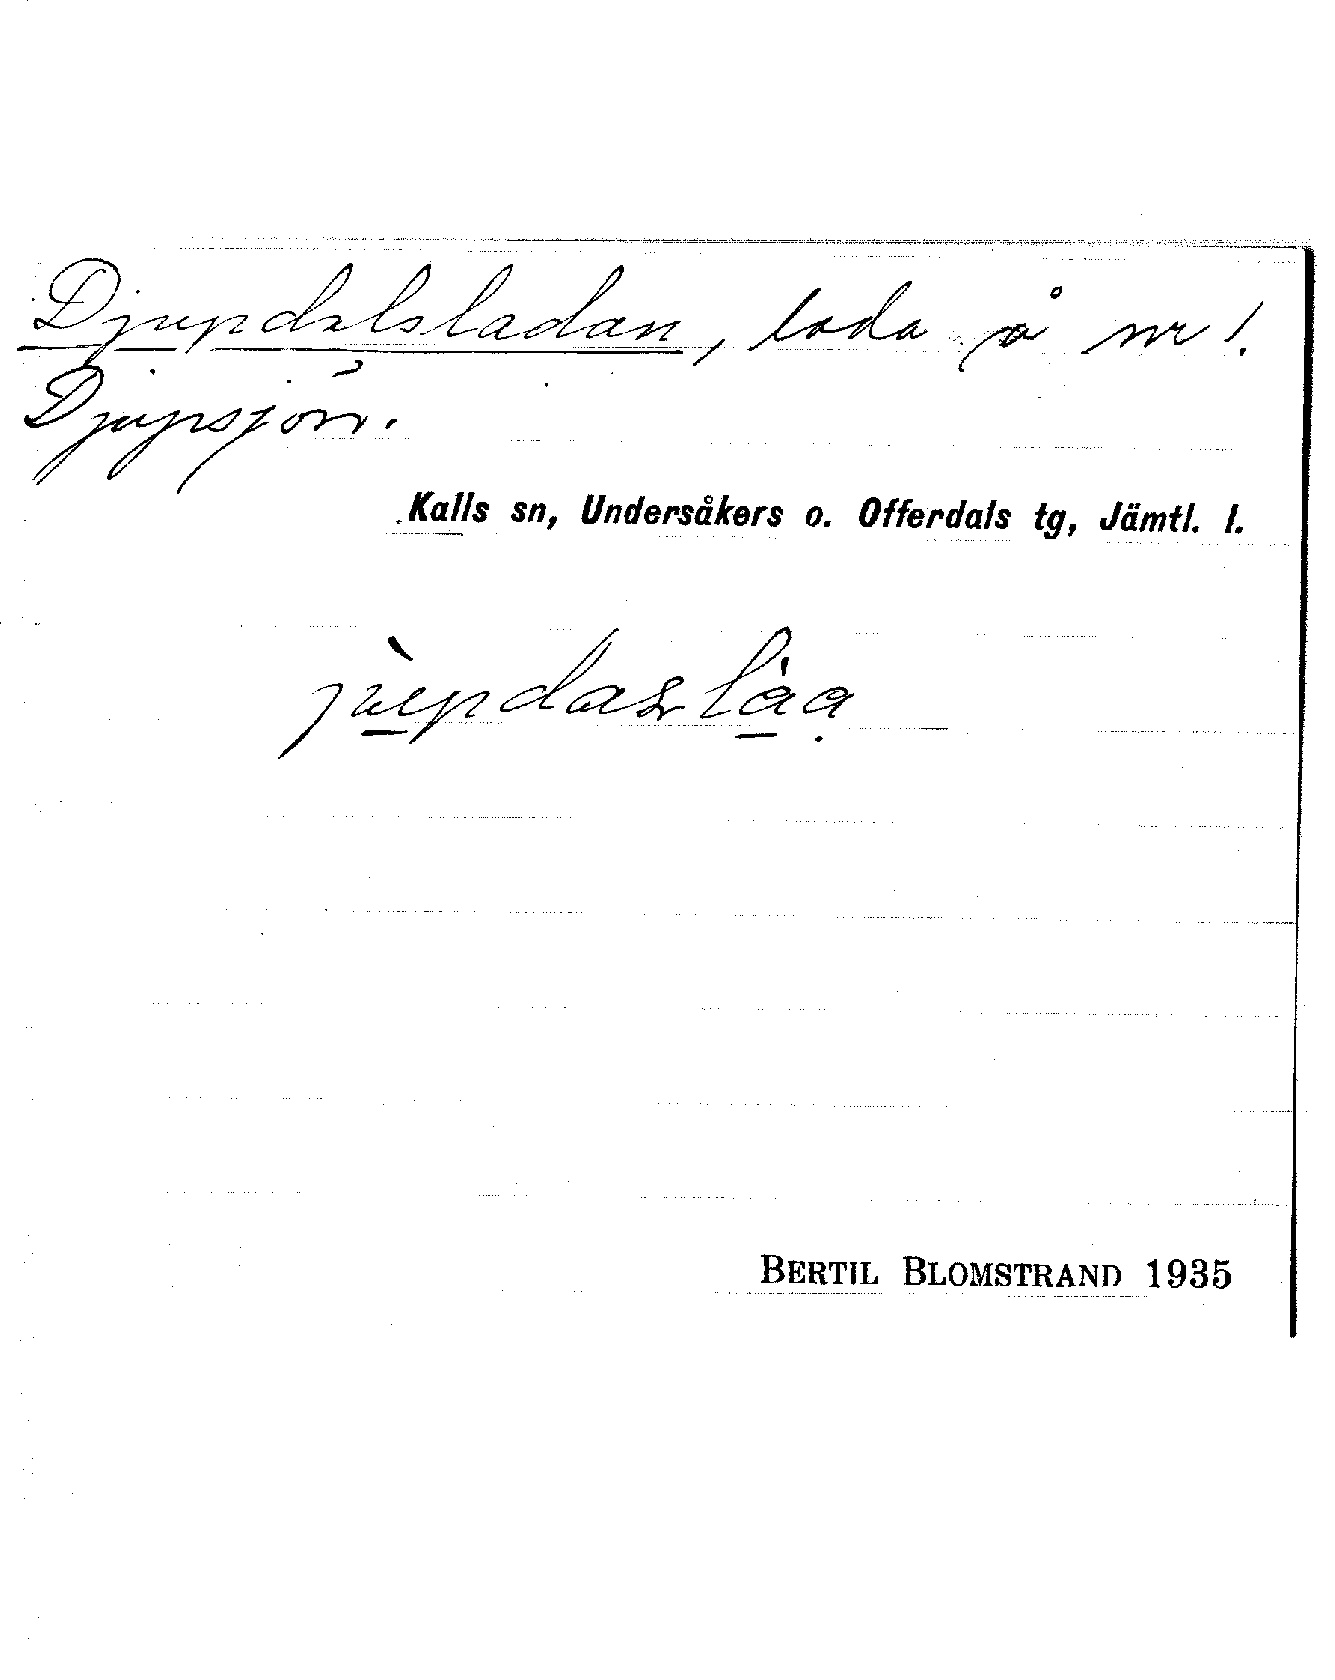 Djupdalsladan, lada å nr 1.
Djupsjön.
Kalls sn, Undersåkers o. Offerdals tg, Jämtl. l.
BERTIL BLOMSTRAND 1935